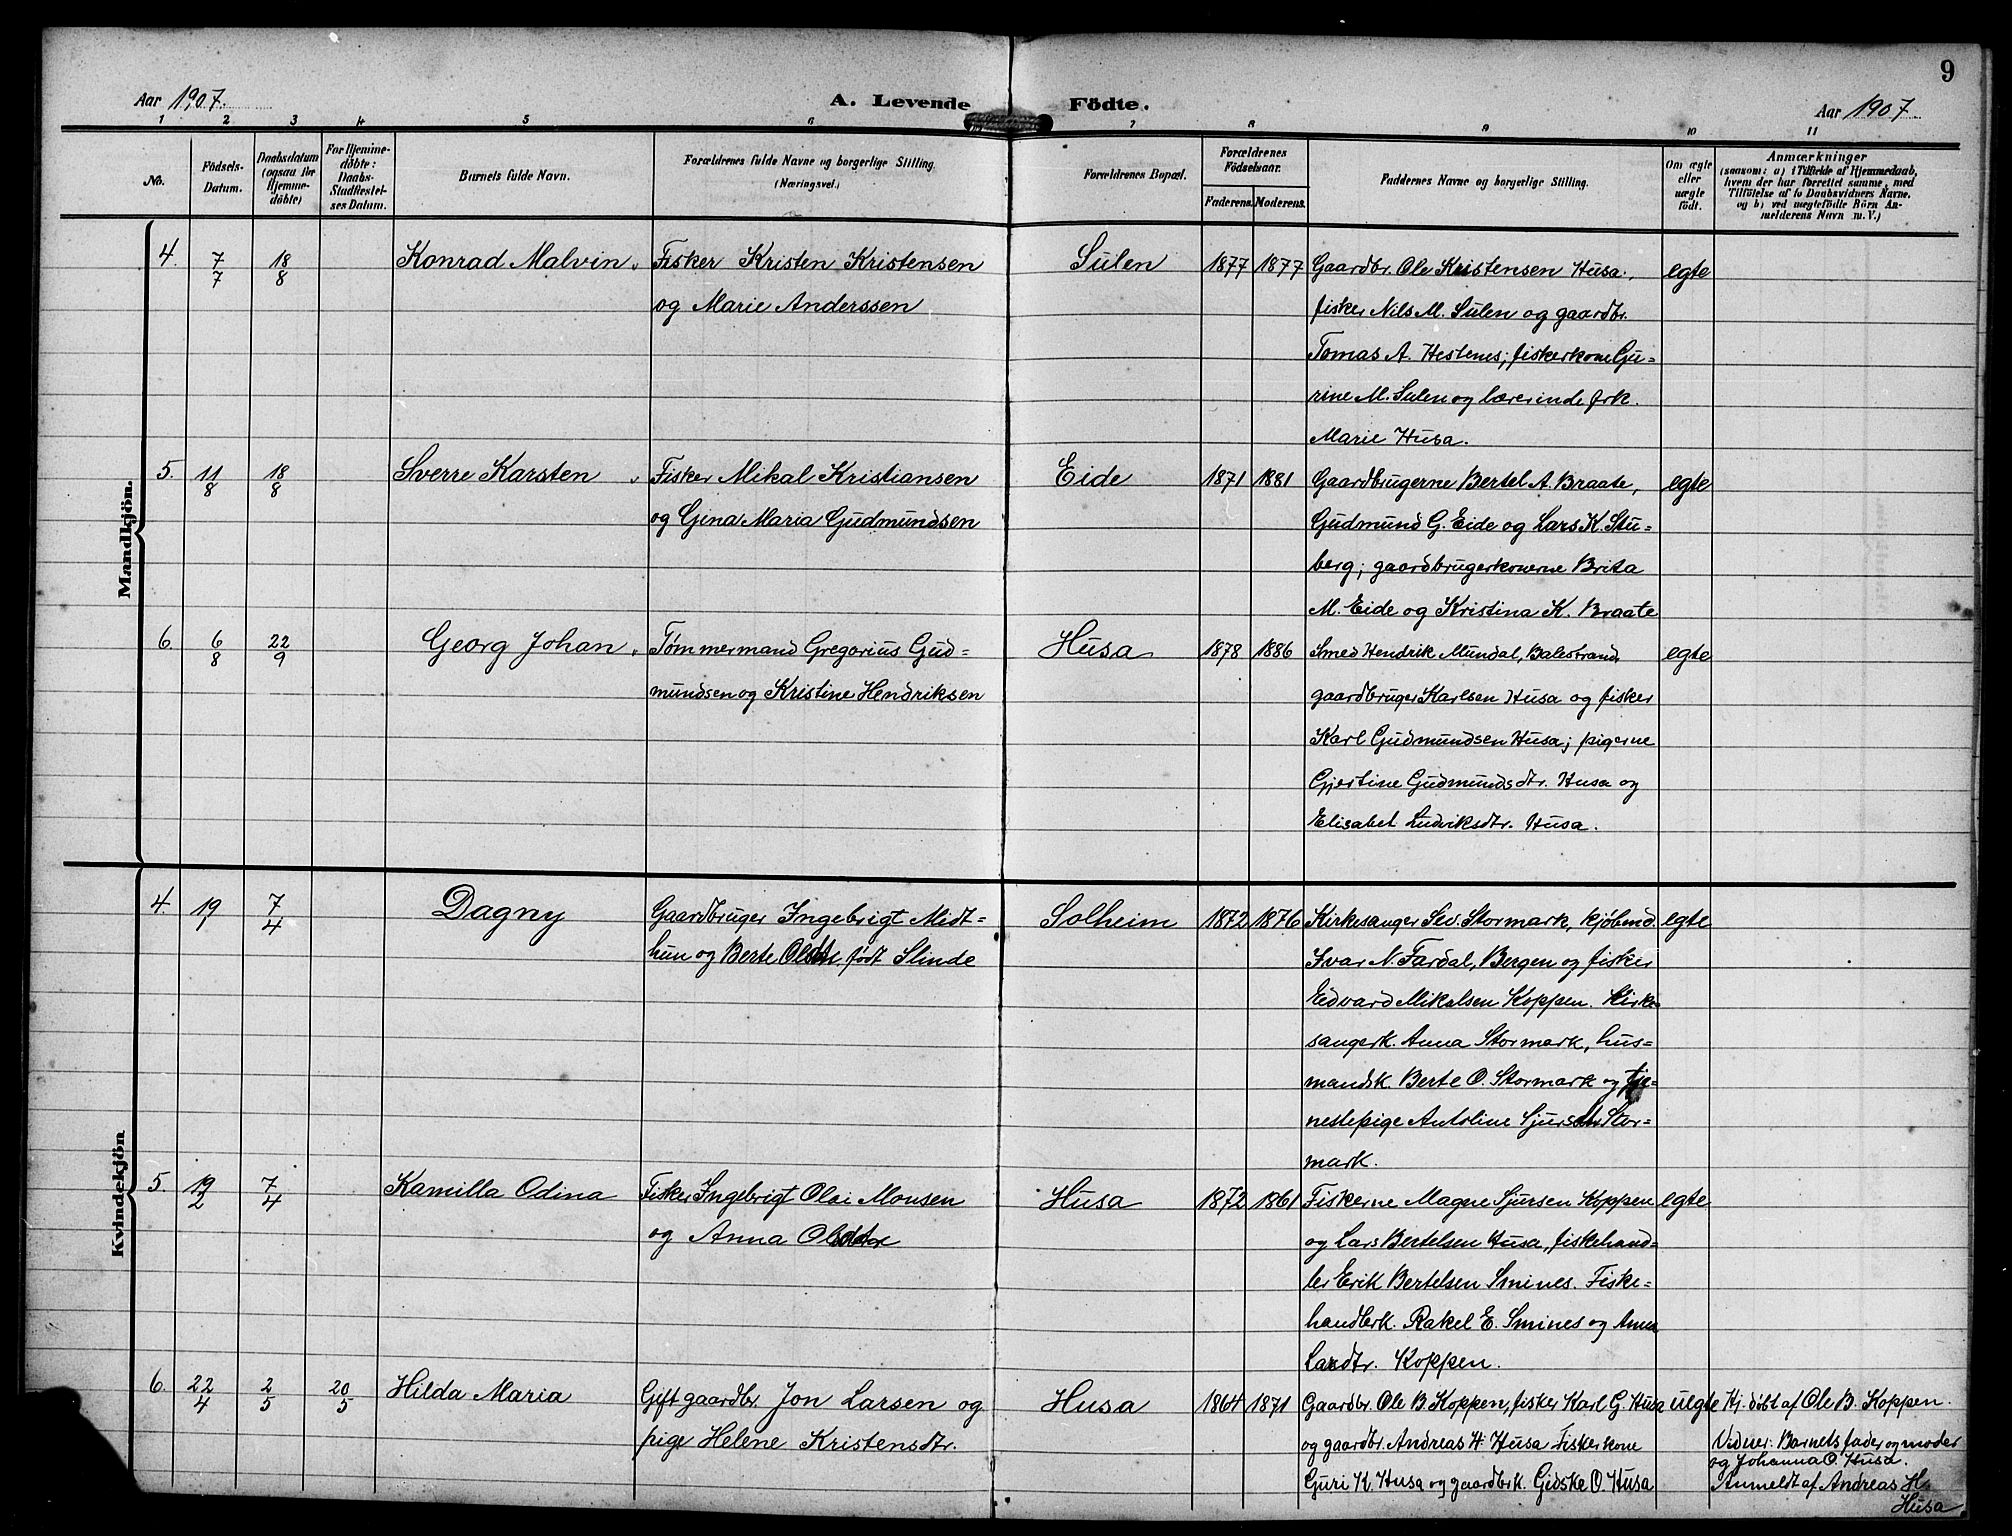 9
Aar 1907.
A. Levende Födte.
Aar 1907.
1 2 3 4 5 6 7 8 9 10 11
No.
Födsels-Datum.
Daabsdatum (ogsaa for Hjemme-döbte)
For Hjemme-döbte: Daabs-Stadfæstel-ses Datum.
Barnets fulde Navn.
Forældrenes fulde Navne og borgerlige Stilling.
(Næringsvei.)
Forældrenes Bopæl.
Forældrenes Födselsaar.
Faderens. Moderens.
Faddernes Navne og borgerlige Stilling.
Om ægte eller uægte födt.
Anmærkninger
(saasom: a) i Tilfælde af Hjemmedaab,
hvem der har forrettet samme, med
Tilföielse af to Daabsvidners Navne,
og b) ved uægtefödte Börn An-
melderens Navn m. V.)
Mandkjön.
4. 7/7 18/8 Konrad Malvin Fisker Kristen Kristensen Sulen 1877 1877 Gaardbr. Ole Kristensen Husa, egte
og Marie Anderssen fisker Nils M. Sulen og gaardbr.
Tomas A. Hestenes; fiskerkone Gu-
rine M. Sulen og lærerinde frk.
Marie Husa.
5. 11/8 18/8 Sverre Karsten Fisker Mikal Kristiansen Eide 1871 1881 Gaardbrugerne Bertel A. Braate, egte
og Gina Maria Gudmundsen Gudmund G. Eide og Lars K. Stu-
berg; gaardbrugerkonerne Brita
M. Eide og Kristina K. Braate
6. 6/8 22/9 Georg Johan Tømmermand Gregorius Gud- Husa 1878 1886 Smed Hendrik Mundal, Balestrand, egte
mundsen og Kristine Hendriksen gaardbruger Karlsen Husa og fisker
Karl Gudmundsen Husa; pigerne
Gjertine Gudmundsdtr. Husa og
Elisabet Ludviksdtr. Husa.
Kvindekjön
4. 19/1 7/4 Dagny Gaardbruger Ingebrigt Midt- Solheim 1872 1876 Kirkesanger Sev. Stormark, kjøbmd. egte
hun og Berte født Slinde Ivar N. Fardal, Bergen og fisker
Edvard Mikalsen Koppen. Kirke-
sangerk. Anna Stormark, hus-
mandsk. Berte O. Stormark og tje-
nestepige Antoline Sjursdtr. Stor-
mark.
5. 19/2 7/4 Kamilla Odina Fisker Ingebrigt Olai Monsen Husa 1872 1861 Fiskerne Magne Sjursen Koppen egte
og Anna og Lars Bertelsen Husa, fiskehand-
ler Erik Bertelsen Smines. Fiske-
handlerk. Rakel E. Smines og Anna
Larsdtr. Koppen.
6. 22/4 2/5 20/5 Hilda Maria Gift gaardbr. Jon Larsen og Husa 1864 1871 Gaardbr. Ole B. Koppen, fisker Karl G. Husa uegte Hj. døbt af Ole B. Koppen.
pige Helene Kristensdtr. og gaardbr. Andreas H. Husa. Fiskerkone Vidner: Barnets fader og moder
og Johanna O. Husa.
Guri K. Husa og gaardbrk. Gidske O. Husa Anmeldt af Andreas H.
Husa